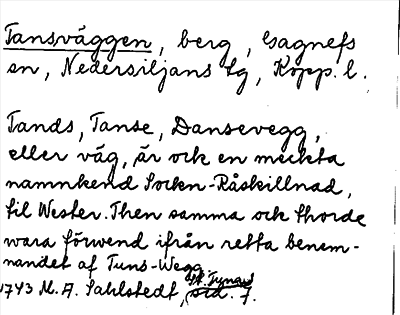 Tansväggen, berg, Gagnefs
sn, Nedersiljans tg, Kopp. l.
Tands, Tanse, Dansevegg,
eller väg, är ock en meckta
namnkend Sockn-Råskillnad,
til Wester. Then samma ock thorde
wara förwend ifrån retta benem-
nandet af Tuns-Wegg
1743 M. A. Sahlstedt, sid. 7.